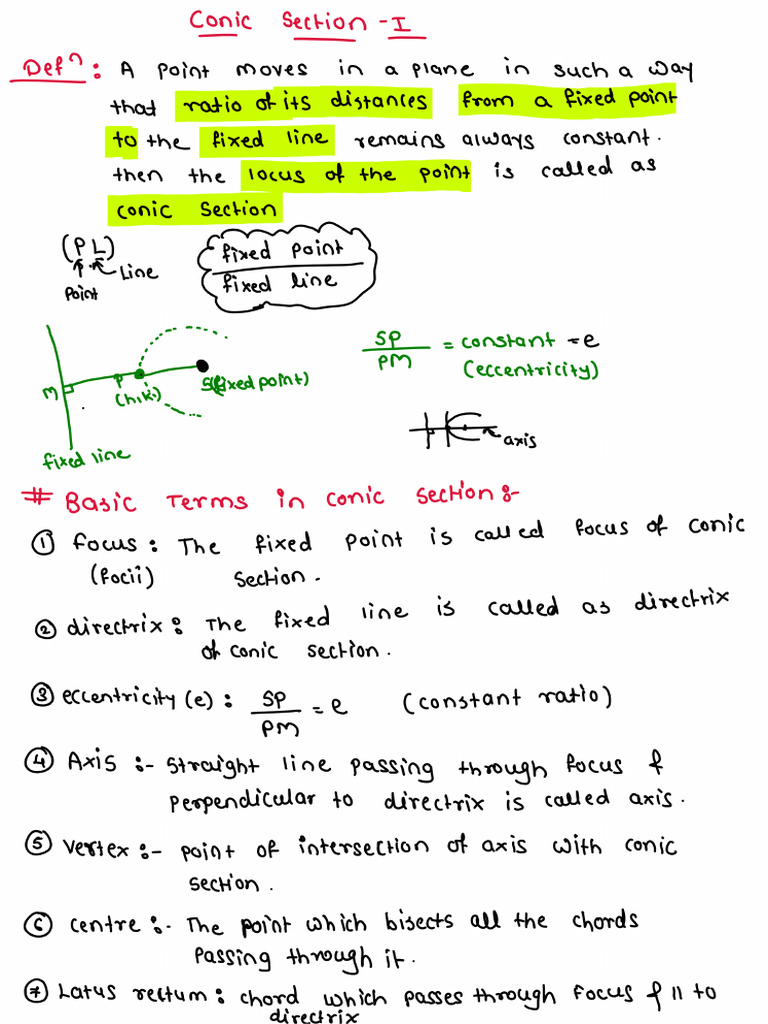 Conic Section - I
Defn : A point moves in a plane in such a way
that ratio of its distances from a fixed point
to the fixed line remains always constant.
then the locus of the point is called as
conic section
(PL)
Line
Point
fixed point
fixed line
SP
PM
= constant = e
(eccentricity)
M
P
(h,k)
S(fixed point)
fixed line
axis
# Basic Terms in conic section :-
① focus : The fixed point is called focus of conic
(focii) section.
② directrix : The fixed line is called as directrix
of conic section.
③ eccentricity (e) : SP/PM = e (constant ratio)
④ Axis :- straight line passing through focus &
perpendicular to directrix is called axis.
⑤ Vertex :- point of intersection of axis with conic
section.
⑥ centre :- The point which bisects all the chords
passing through it.
⑦ Latus rectum : chord which passes through focus & || to
directrix